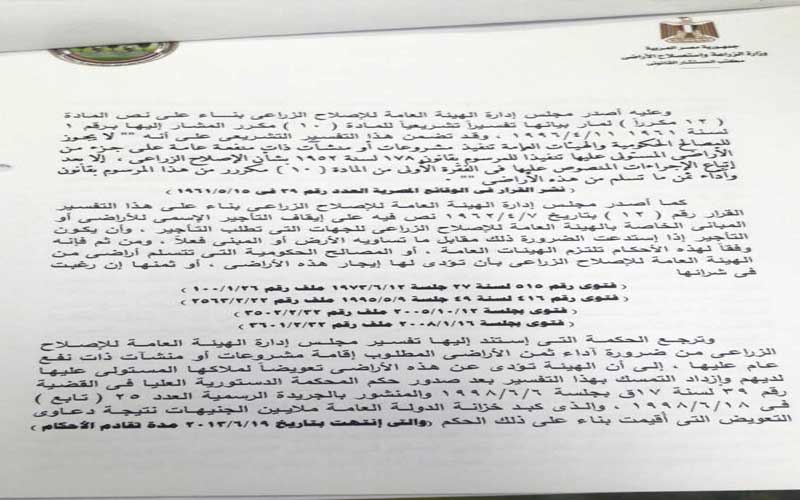 جمهورية مصر العربية
وزارة الزراعة وإستصلاح الأراضى
مكتب المستشار القانونى
وعليه أصدر مجلس إدارة الهيئة العامة للإصلاح الزراعى بناء على نص المادة
( ١٢ مكررا ) لمار بيانها تفسيراً تشريعياً للمادة ( ١٠ ) مكرر المشار إليها برقم ١
لسنة ١٩٦١ ١٩٩٦/٤/١١ ، وقد تضمن هذا التفسير التشريعى على أنه "" لا يجوز
للمصالح الحكومية والهيئات العامة تنفيذ مشروعات أو منشآت ذات منفعة عامة على جزء من
الأراضى المستولى عليها تنفيذا للمرسوم بقانون ١٧٨ لسنة ١٩٥٢ بشأن الإصلاح الزراعى ، إلا بعد
إتباع الإجراءات المنصوص عليها فى الفقرة الأولى من المادة ( ١٠ ) مكرر من هذا المرسوم بقانون
وأداء ثمن ما تسلم من هذه الأراضى ""
( نشر القرار فى الوقائع المصرية العدد رقم ٣٩ فى ١٩٦١/٥/١٥ )
كما أصدر مجلس إدارة الهيئة العامة للإصلاح الزراعى بناء على هذا التفسير
القرار رقم ( ١٢ ) بتاريخ ١٩٦٢/٤/٧ نص فيه على إيقاف التأجير الإسمى للأراضى أو
المبانى الخاصة بالهيئة العامة للإصلاح الزراعى للجهات التى تطلب التأجير ، وأن يكون
التأجير إذا إستدعت الضرورة ذلك مقابل ما تساويه الأرض أو المبنى فعلاً ، ومن ثم فإنه
وفقاً لهذه الأحكام تلتزم الهيئات العامة ، أو المصالح الحكومية التى تتسلم أراضى من
الهيئة العامة للإصلاح الزراعى بأن تؤدى لها إيجار هذه الأراضى ، أو ثمنها إن رغبت
فى شرائها
( فتوى رقم ٥١٥ لسنة ٢٧ جلسة ١٩٧٣/٦/١٢ ملف رقم ١٠٠/١/٢٦ )
( فتوى رقم ٤١٦ لسنة ٤٩ جلسة ١٩٩٥/٥/٩ ملف رقم ٢٥٦٣/٢/٢٢ )
( فتوى بجلسة ٢٠٠٥/١٠/١٢ ملف رقم ٣٥٠٢/٢/٣٢ )
( فتوى بجلسة ٢٠٠٨/١/١٦ ملف رقم ٣٦٠١/٢/٣٢ )
وترجع الحكمة التى إستند إليها تفسير مجلس إدارة الهيئة العامة للإصلاح
الزراعى من ضرورة أداء ثمن الأراضى المطلوب إقامة مشروعات أو منشآت ذات نفع
عام عليها ، إلى أن الهيئة تؤدى عن هذه الأراضى تعويضاً لملاكها المستولى عليها
لديهم وإزداد التمسك بهذا التفسير بعد صدور حكم المحكمة الدستورية العليا فى القضية
رقم ٣٩ لسنة ١٧ق بجلسة ١٩٩٨/٦/٦ والمنشور بالجريدة الرسمية العدد ٢٥ ( تابع )
فى ١٩٩٨/٦/١٨ ، والذى كبد خزانة الدولة العامة ملايين الجنيهات نتيجة دعاوى
التعويض التى أقيمت بناء على ذلك الحكم ( والتى إنتهت بتاريخ ٢٠١٣/٦/١٩ مدة تقادم الأحكام )